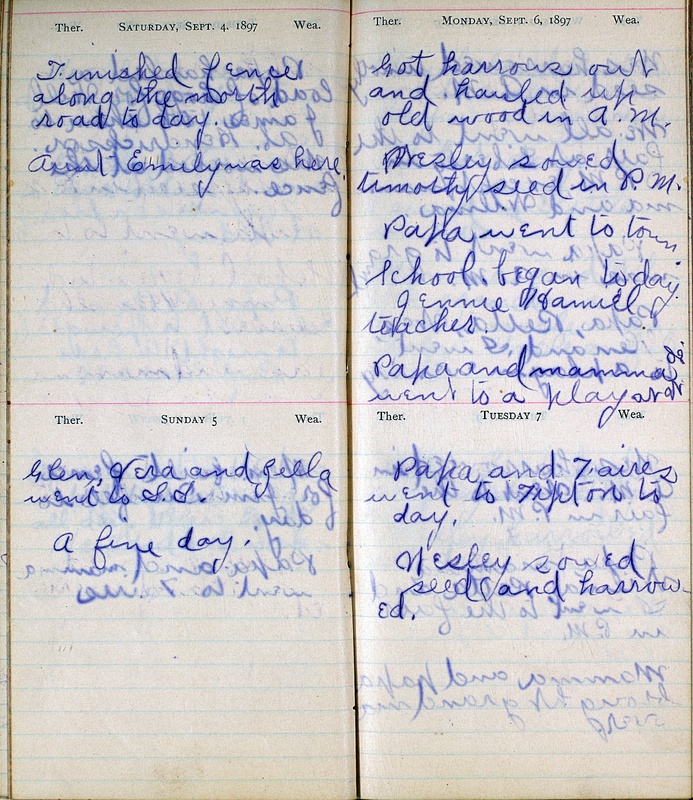 Ther. SATURDAY, SEPT. 4, 1897 Wea.
Finished fence
along the north
road to day.
Aunt Emily was here.
Ther. SUNDAY 5 Wea.
Glen, Vera and Zella
went to S.S.
A fine day.
Ther. MONDAY, SEPT. 6, 1897 Wea.
Got harrows out
and hauled up
old wood in A.M.
Wesley sowed
timothy seed in P.M.
Papa went to town
School began to day
Jennie
teacher.
Papa and mamma
went to a play at
Ther. TUESDAY 7 Wea.
Papa and Zaires
went to Tipton to
day.
Wesley sowed
seed and harrow-
ed.